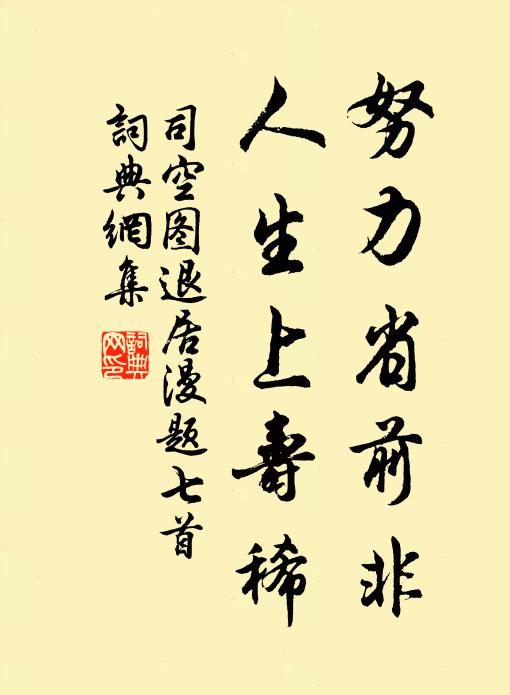 努力省前非
人生上壽稀
司空图退居漫题七首
詞典網集
詞典網印